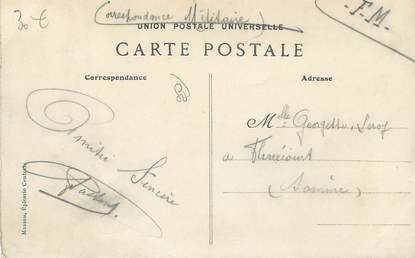 30 €
Correspondance Militaire
F.M.
UNION POSTALE UNIVERSELLE
CARTE POSTALE
Correspondance
Adresse
Amitié
Sincère
Melle Georgette Leroy
a
(Somme)
Épicerie Centrale